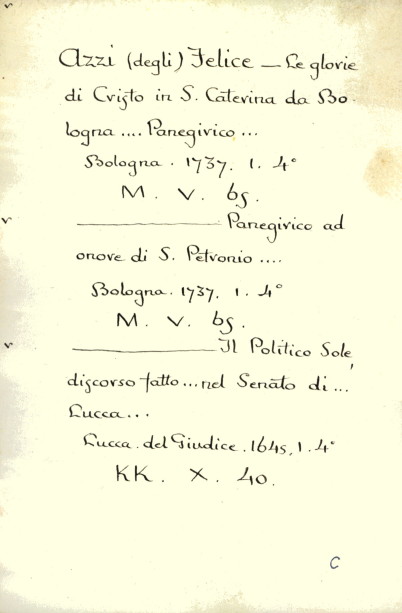 Azzi (degli) Felice — Le glorie
di Cristo in S. Caterina da Bo-
logna .... Panegirico ...
Bologna. 1737. 1. 4°
M. V. 65.
——— Panegirico ad
onore di S. Petronio ....
Bologna. 1737. 1. 4°
M. V. 65.
——— Il Politico Sole,
discorso fatto ... nel Senato di ...
Lucca ...
Lucca. del Giudice. 1645, 1. 4°
KK. X. 40.
C